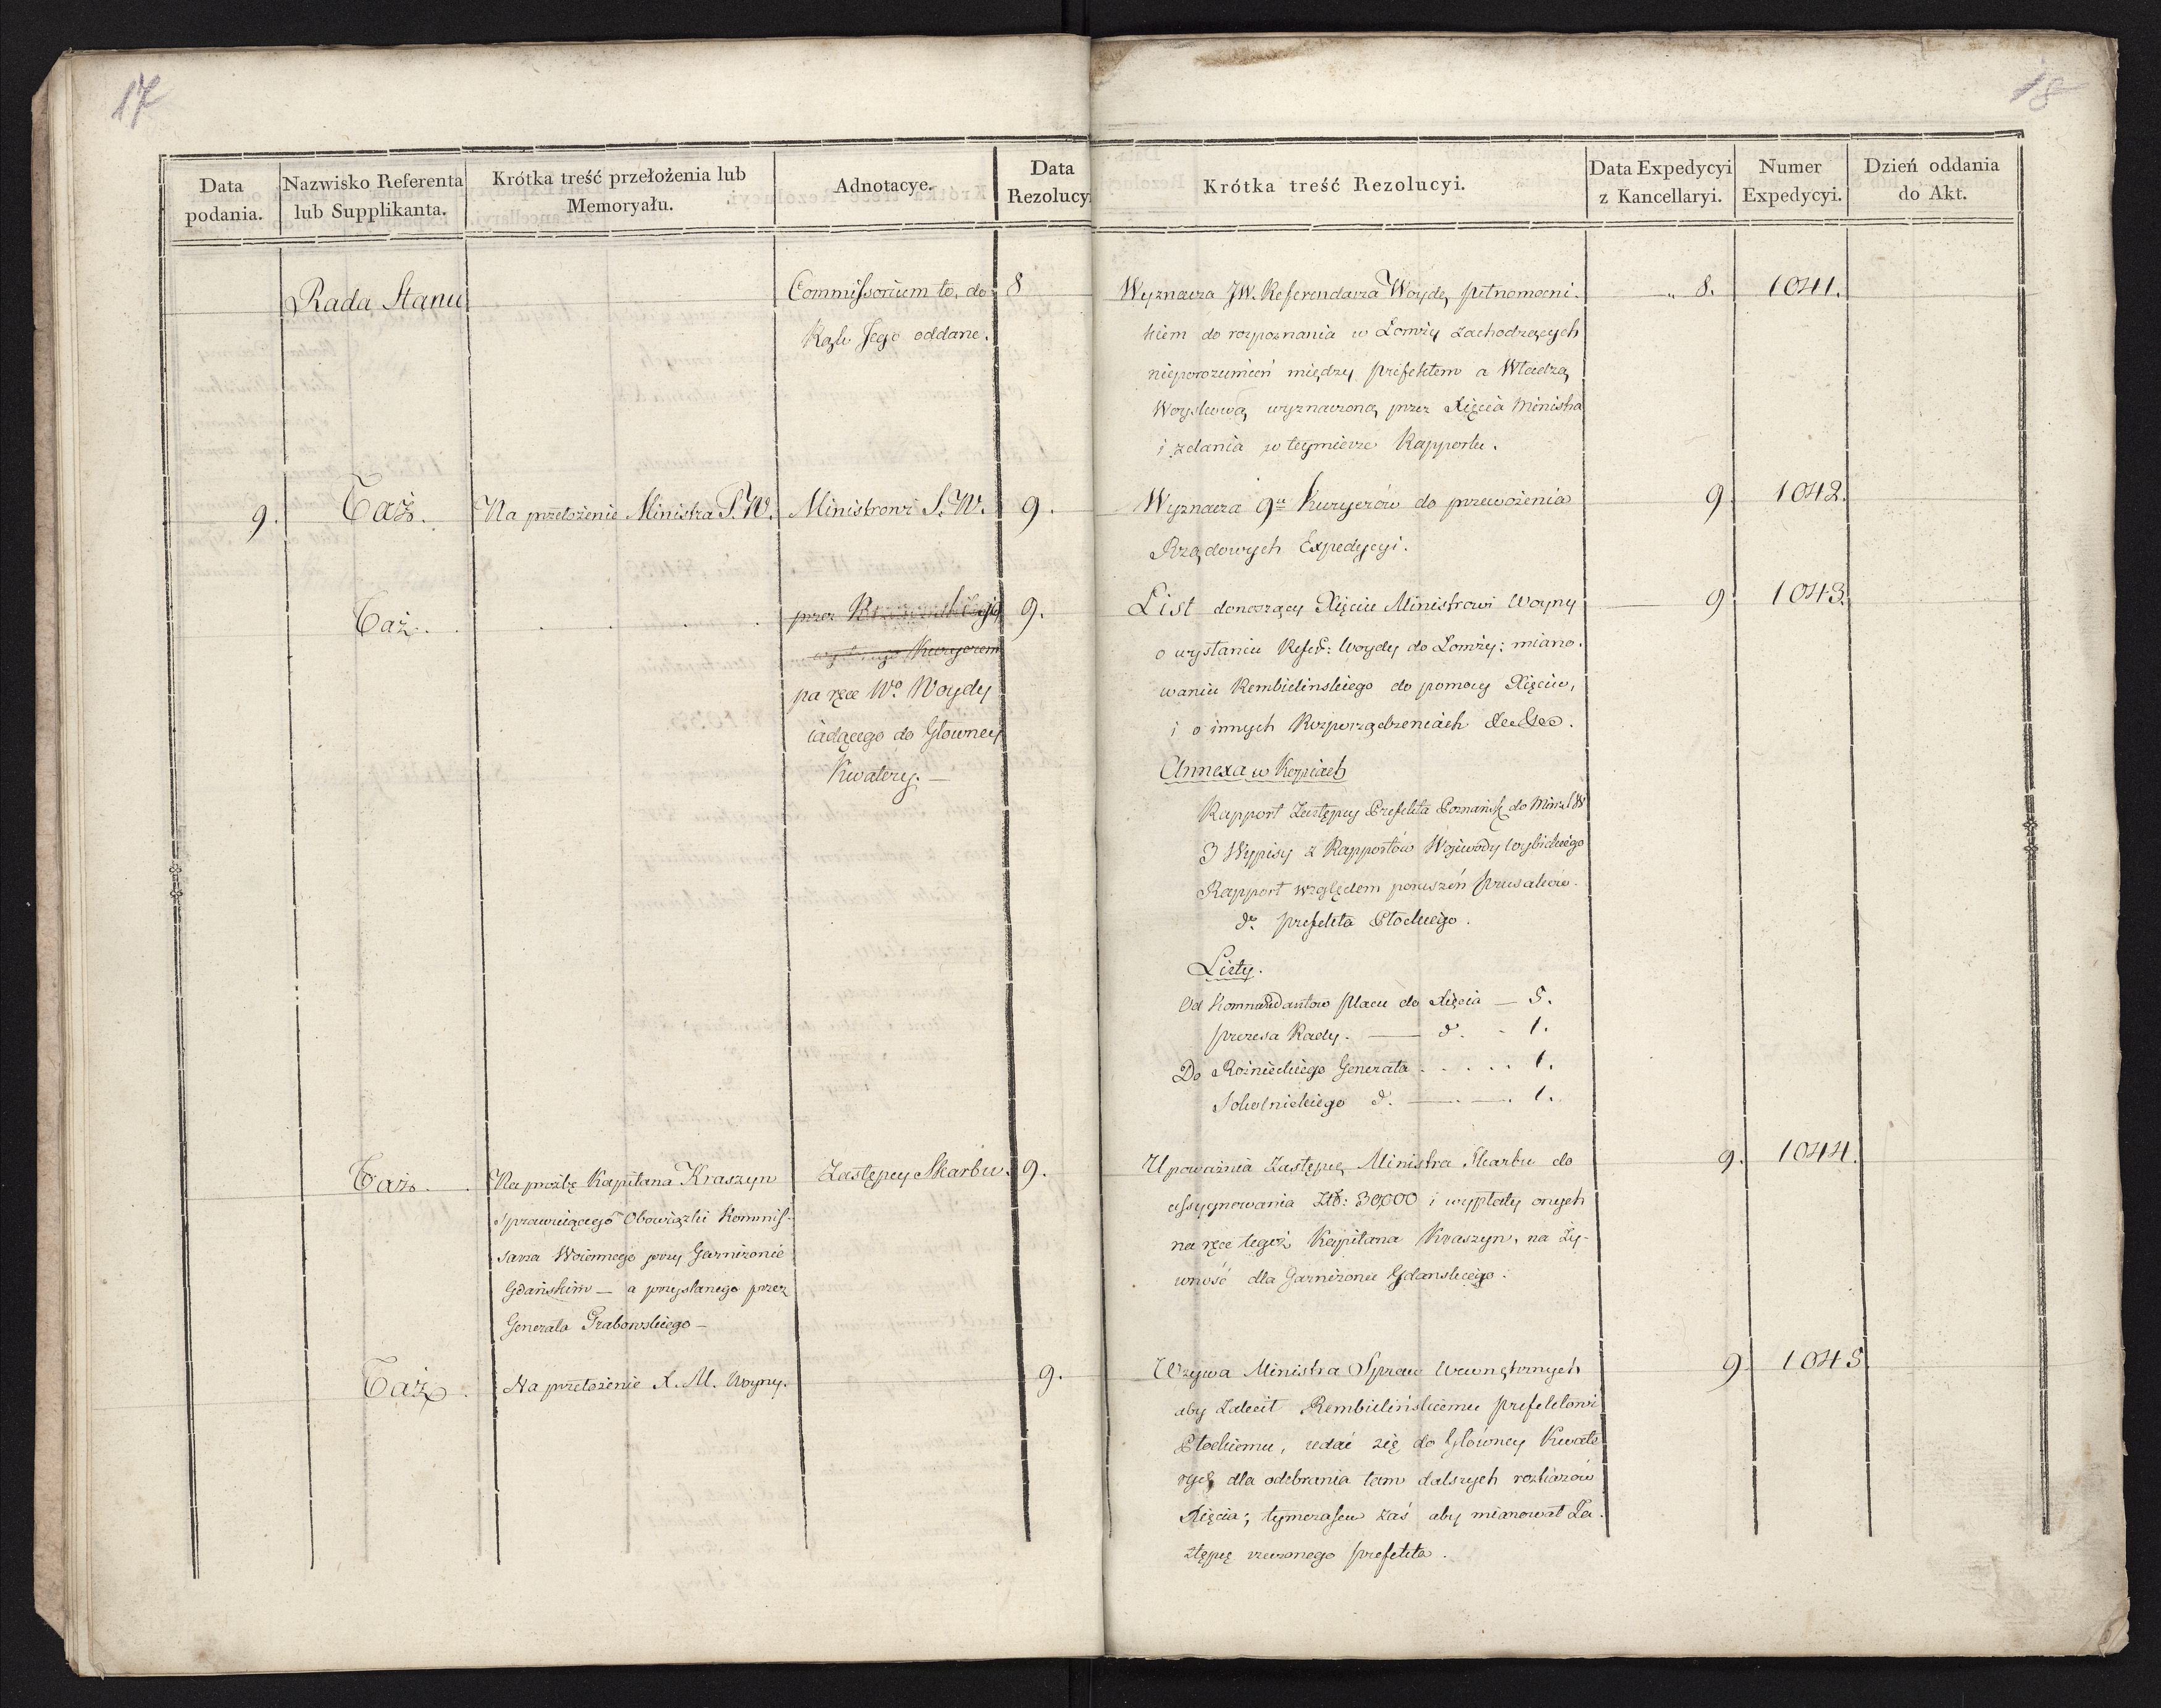 17
18
Data podania.
Nazwisko Referenta lub Supplikanta.
Krótka treść przełożenia lub Memoryału.
Adnotacye.
Data Rezolucy
Krótka treść Rezolucyi.
Data Expedycyi z Kancellaryi.
Numer Expedycyi.
Dzień oddania do Akt.
Rada Stanu
Commissorium to, do
Rąk Jego oddane.
8
Wyznacza JW. Referendarza Woydę pełnomocni-
kiem do rozpoznania w Łomży zachodzących
nieporozumień między prefektem a Władzą
Woyskową wyznaczoną przez Xięcia Ministra
i zdania w teymierze Rapportu.
„ 8.
1041.
9.
Taż.
Na przełożenie Ministra S.W.
Ministrowi S.W.
9.
Wyznacza 9u Kuryerów do przewożenia
Rządowych Expedycyi.
9
1042.
Taż.
przez
Kuryerem
na ręce Wo. Woydy
iadącego do Głowney
Kwatery. —
9.
List donoszący Xięciu Ministrowi Woyny
o wysłaniu Refer: Woydy do Łomży; miano-
waniu Rembielinskiego do pomocy Xięciu,
i o innych Rozporządzeniach &c &c.
9
1043.
Annexa w Kopiach
Rapport Zastępcy Prefekta Poznańsk. do Minis. S W
3 Wypisy z Rapportów Wojewody Wybickiego
Rapport względem poruszeń prusaków.
do. prefekta Płockiego.
Listy.
Od Kommandantów placu do Xięcia — 5.
prezesa Rady. — do. - 1.
Do Rożnieckiego Generała . . . . . 1.
Sokolnickiego d. — . — . 1.
Taż.
Na prośbę Kapitana Kraszyn
sprawuiącego Obowiązki Kommis-
sarza Woiennego przy Garnizonie
Gdańskim — a przysłanego przez
Generała Grabowskiego —
Zastępcy Skarbu.
9.
Upoważnia Zastępcę Ministra Skarbu do
assygnowania Zł: 30000 i wypłaty onych
na ręce tegoż Kapitana Kraszyn, na Ży-
wność dla Garnizonu Gdanskiego.
9.
1044.
Taż
Na przełożenie X. M. Woyny.
9.
Wzywa Ministra Spraw Wewnętrznych
aby zalecił Rembielińskiemu prefektowi
Płockiemu, udać się do Główney Kwate-
ry dla odebrania tam dalszych rozkazów
Xięcia; tymczasem zaś aby mianował Za-
stępcę rzeczonego prefekta.
9.
1045